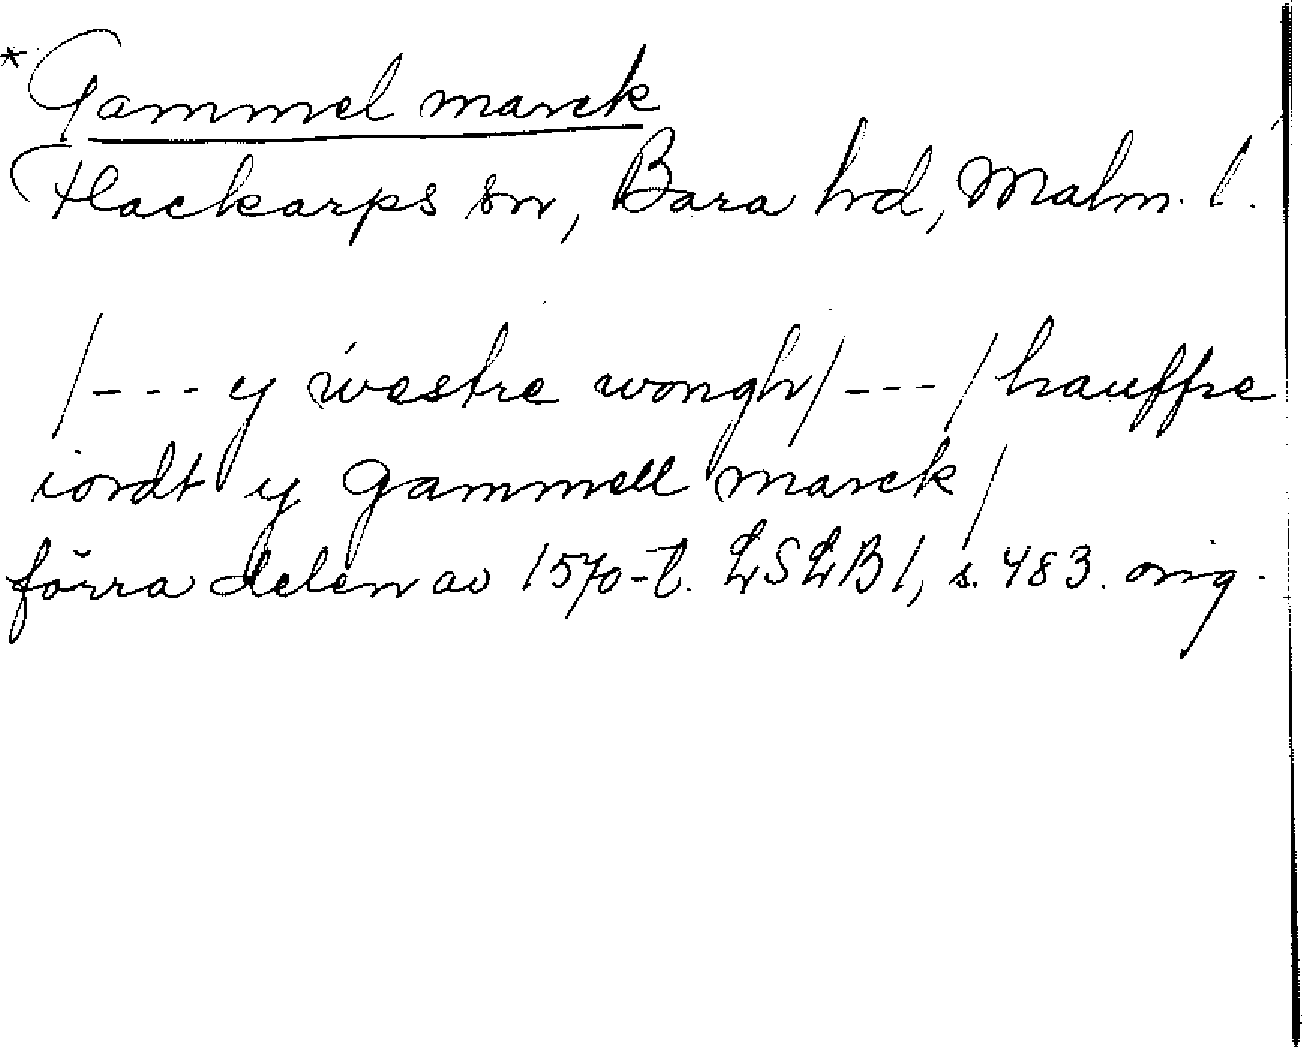 *Gammel marck
Flackarps sn, Bara hd, Malm. l.
/--- y westre wongh/---/hauffre
iordt y gammell marck/
förra delen av 1570-t. LSLB I, s. 483. orig.